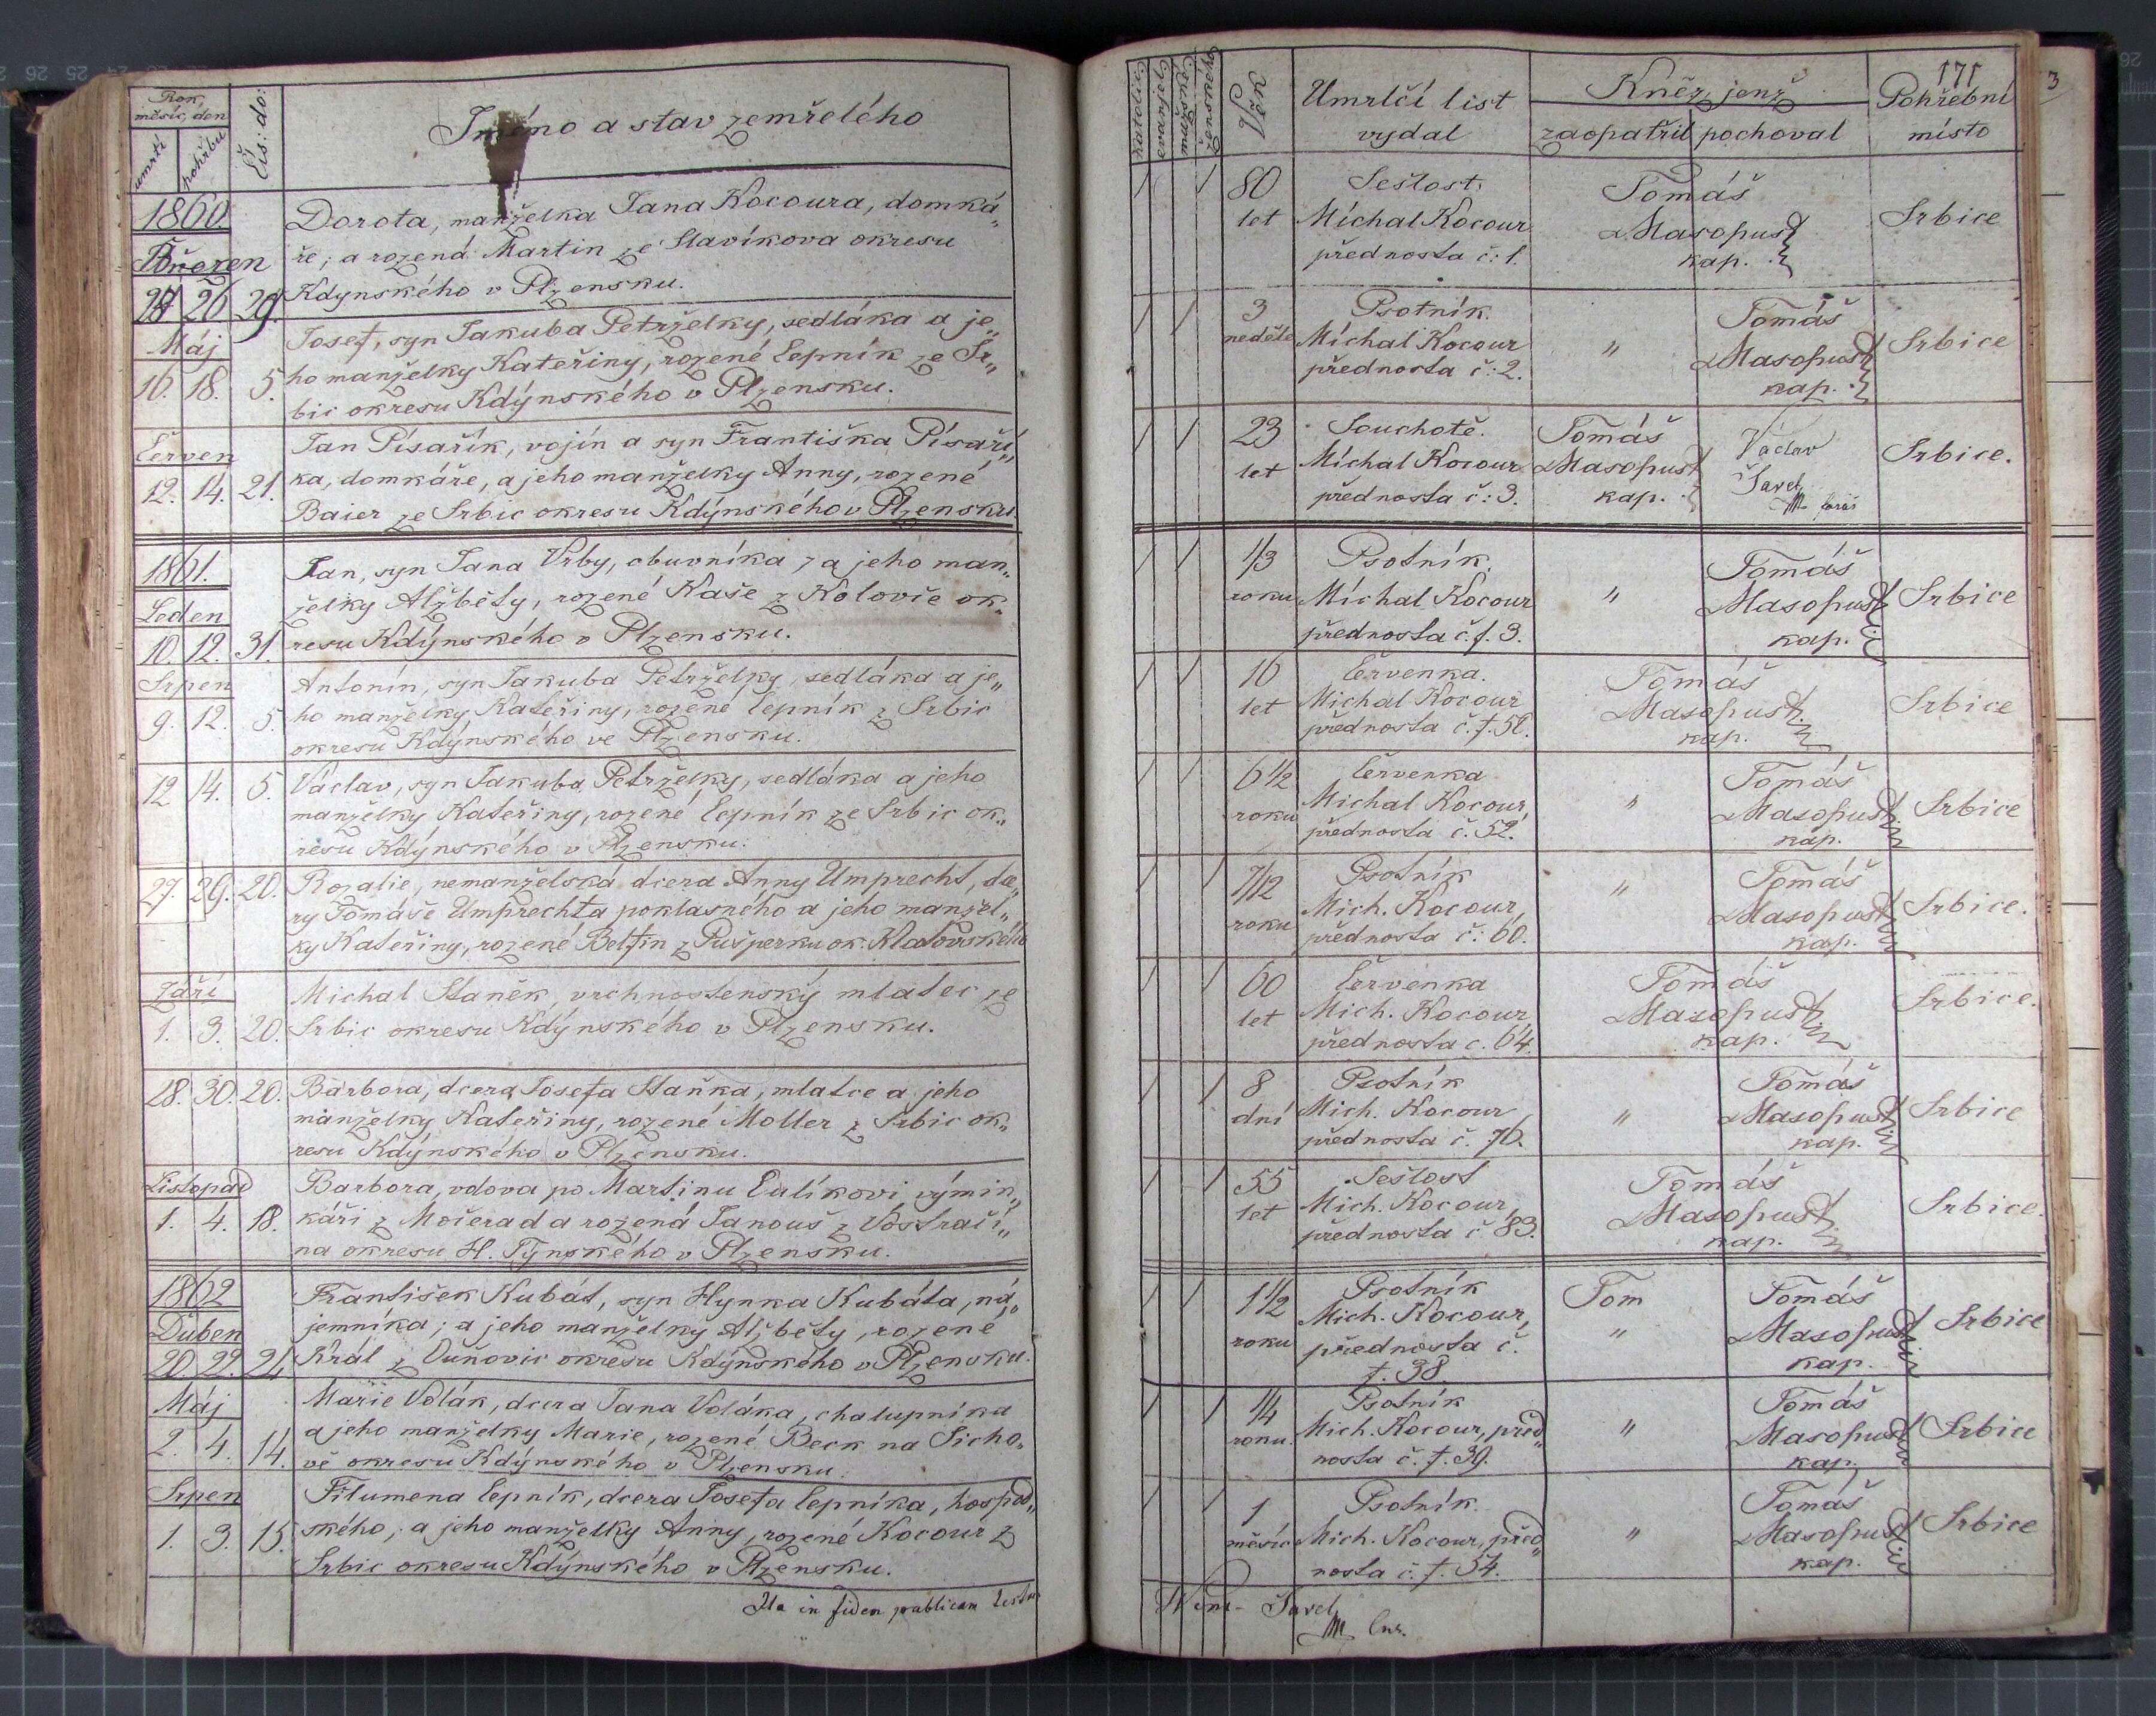 Rok,
měsíc, den
umrtí
pohřbu
Čís: do:
Jméno a stav zemřelého
1860.
Březen
26 29.
Dorota, manželka Jana Kocoura, domká„
ře; a rozená Martin ze Slavíkova okresu
Kdynského v Plzensku.
Máj
16. 18. 5.
Josef, syn Jakuba Petrželky, sedláka a je„
ho manželky Kateřiny, rozené Čepník ze Sr„
bic okresu Kdýnského v Plzensku.
Červen
12. 14. 21.
Jan Písařík, vojín a syn Františka Písaří„
ka, domkáře, a jeho manželky Anny, rozené
Baier ze Srbic okresu Kdýnského v Plzensku
1861.
Leden
10. 12. 31.
Jan, syn Jana Vrby, obuvníka, a jeho man„
želky Alžběty, rozené Kaše z Koloveče ok„
resu Kdýnského v Plzensku.
Srpen
9. 12. 5.
Antonín, syn Jakuba Petrželky, sedláka a je„
ho manželky Kateřiny, rozené Čepník z Srbic
okresu Kdýnského ve Plzensku.
12. 14. 5.
Václav, syn Jakuba Petrželky, sedláka a jeho
manželky Kateřiny, rozené Čepník ze Srbic ok„
resu Kdýnského v Plzensku.
27. 29. 20.
Rozalie, nemanželská dcera Anny Umprecht, dce„
ry Tomáše Umprechta poklasného a jeho manžel„
ky Kateřiny, rozené Beltin z Pušperku ok. Klatovského
Září
1. 3. 20.
Michal Staněk, vrchnostenský mlatec ze
Srbic okresu Kdýnského v Plzensku.
28. 30. 20.
Barbora, dcera Josefa Staňka, mlatce a jeho
manželky Kateřiny, rozené Moller z Srbic ok„
resu Kdýnského v Plzensku.
Listopad
1. 4. 18.
Barbora, vdova po Martinu Culíkovi, výmin„
káři z Močerad a rozená Janouš z Vostrači„
na okresu H. Týnského v Plzensku.
1862
Duben
20. 22. 24
František Kubát, syn Hynka Kubáta, ná„
jemníka; a jeho manželky Alžběty, rozené
Král z Ouňovic okresu Kdýnského v Plzensku.
Máj
2. 4. 14.
Marie Volák, dcera Jana Voláka, chalupníka
a jeho manželky Marie, rozené Beck na Sicho„
vě okresu Kdýnského v Plzensku.
Srpen
1. 3. 15.
Filumena Čepník, dcera Josefa Čepníka, hospod„
ského, a jeho manželky Anny, rozené Kocour z
Srbic okresu Kdýnského v Plzensku.
Ita in fidem publicam testor
katolické
evanjel
mužské
ženské
Věk
Umrlčí list
vydal
Kněz, jenž
zaopatřil pochoval
171
Pohřební
místo
3
80
let
Sešlost.
Míchal Kocour
přednosta č: 1.
Tomáš
Masopust
kap.
Srbice
3
neděle
Psotník.
Míchal Kocour
přednosta č: 2.
„
Tomáš
Masopust
kap.
Srbice
23
let
Souchotě.
Míchal Kocour
přednosta č: 3.
Tomáš
Masopust
kap.
Václav
Šavel
farář
Srbice.
1/3
roku
Psotník.
Míchal Kocour
přednosta č. f. 3.
„
Tomáš
Masopust
kap.
Srbice
16
let
Červenka.
Michal Kocour
přednosta č. f. 51.
Tomáš
Masopust
kap.
Srbice
6 1/2
roku
Červenka
Michal Kocour,
přednosta č. 52.
„
Tomáš
Masopust
kap.
Srbice
7/12
roku
Psotník
Mich. Kocour,
přednosta č: 60.
„
Tomáš
Masopust
kap.
Srbice.
60
let
Červenka
Mich. Kocour,
přednosta c. 64.
Tomáš
Masopust
kap.
Srbice.
8
dní
Psotník
Mich. Kocour,
přednosta č. 76.
„
Tomáš
Masopust
kap.
Srbice
55
let
Sešlost
Mich. Kocour,
přednosta č 83.
Tomáš
Masopust
kap.
Srbice.
1 1/2
roku
Psotník
Mich. Kocour,
přednosta č.
f. 38.
Tom
„
Tomáš
Masopust
kap.
Srbice
1/4
roku.
Psotník
Mich. Kocour, před„
nosta č. f. 39.
„
Tomáš
Masopust
kap.
Srbice
1
měsíc
Psotník.
Mich. Kocour, před„
nosta č. f. 54.
„
Tomáš
Masopust
kap.
Srbice
Wenc. Šavel